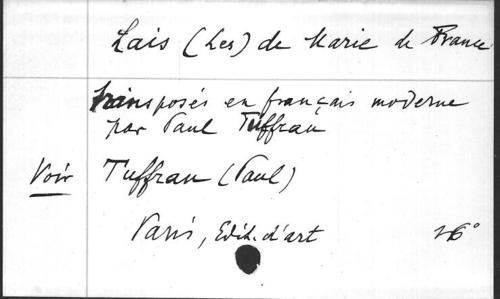 Lais (Les) de Marie de France
transposés en français moderne
par Paul Tuffrau
Voir Tuffrau (Paul)
Paris, Edit. d'art 16°